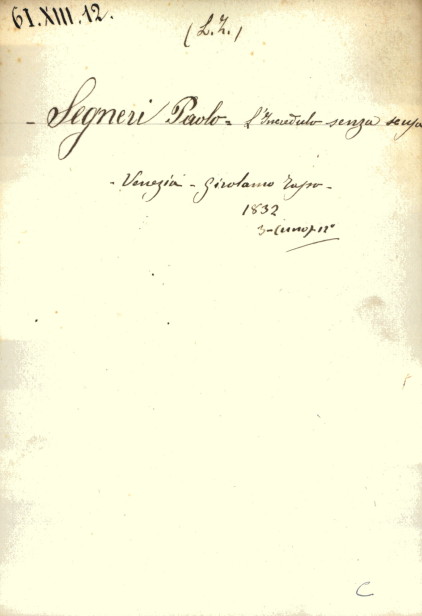 61.XIII.12.
(L.Z.)
- Segneri Paolo = L'Incredulo senza scusa
- Venezia - Girolamo Tasso -
1832
3-(uno)-12°
C